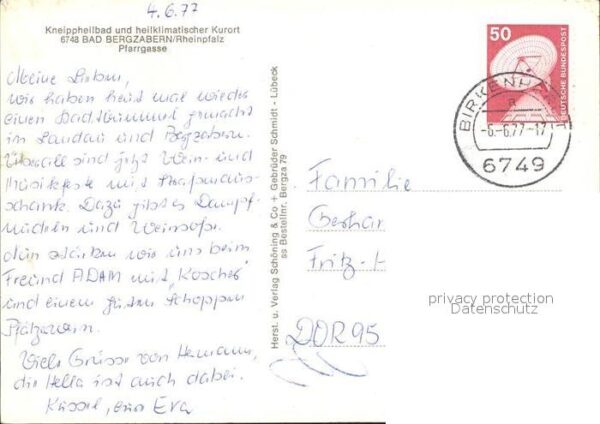 4.6.77
Kneippheilbad und heilklimatischer Kurort
6748 BAD BERGZABERN/Rheinpfalz
Pfarrgasse
Meine Lieben,
wir haben heut mal wieder
einen Stadtbummel gemacht
in Landau und Bergzabern.
Überall sind jetzt Wein- und
Musikfeste mit
schank. Dazu gibt es Dampf-
nudeln und Weinsoße.
Nun stärken wir uns beim
Freund ADAM mit "Kascher"
und einem guten Schoppen
Pfälzwein.
Viele Grüsse von Hermann,
die Hella ist auch dabei.
Küssel, eure Eva
Herst. u. Verlag Schöning & Co + Gebrüder Schmidt - Lübeck
ss Bestellnr. Bergza 79
50
DEUTSCHE BUNDESPOST
BIRKENH
a
-6.-6.77-17
6749
Familie
Gerhar
Fritz-H
DDR 95
privacy protection
Datenschutz